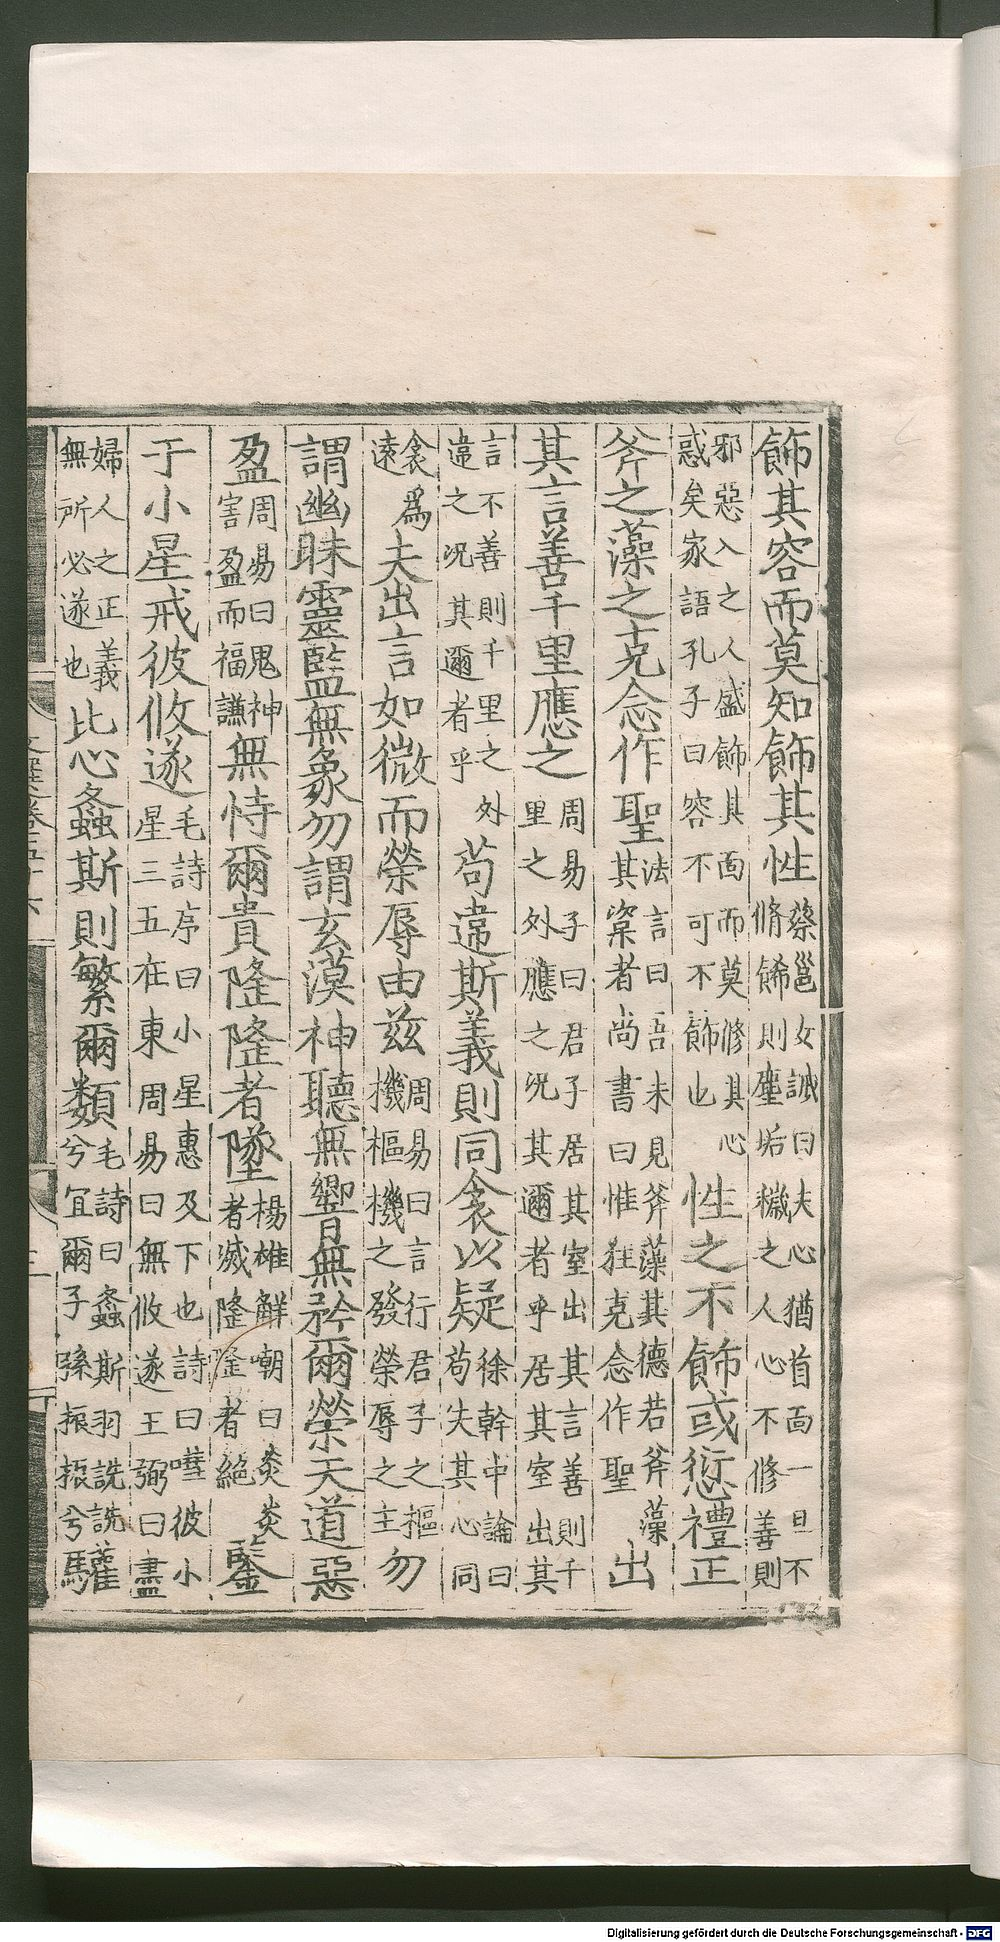 飾其容而莫知飾其性蔡邕女誡曰夫心猶首面一旦不
脩飾則塵垢穢之人心不修善則
邪惡入之人盛飾其面而莫修其心
惑矣家語孔子曰容不可不飾也性之不飾或愆禮正
斧之藻之克念作聖法言曰吾未見斧藻其德若斧藻
其楶者尚書曰惟狂克念作聖出
其言善千里應之周易子曰君子居其室出其言善則千
里之外應之況其邇者乎居其室出其
言不善則千里之外
違之況其邇者乎苟違斯義則同衾以疑徐幹中論曰
苟失其心同
衾爲
遠夫出言如微而榮辱由茲周易曰言行君子之樞
機樞機之發榮辱之主勿
謂幽昧靈監無象勿謂玄漠神聽無響無矜爾榮天道惡
盈周易曰鬼神
害盈而福謙無恃爾貴隆隆者墜楊雄解嘲曰炎炎
者滅隆隆者絕鑒
于小星戒彼攸遂毛詩序曰小星惠及下也詩曰嘒彼小
星三五在東周易曰無攸遂王弼曰盡
婦人之正義
無所必遂也比心螽斯則繁爾類毛詩曰螽斯羽詵詵
兮宜爾子孫振振兮驩
文選卷五十六
Digitalisierung gefördert durch die Deutsche Forschungsgemeinschaft - DFG